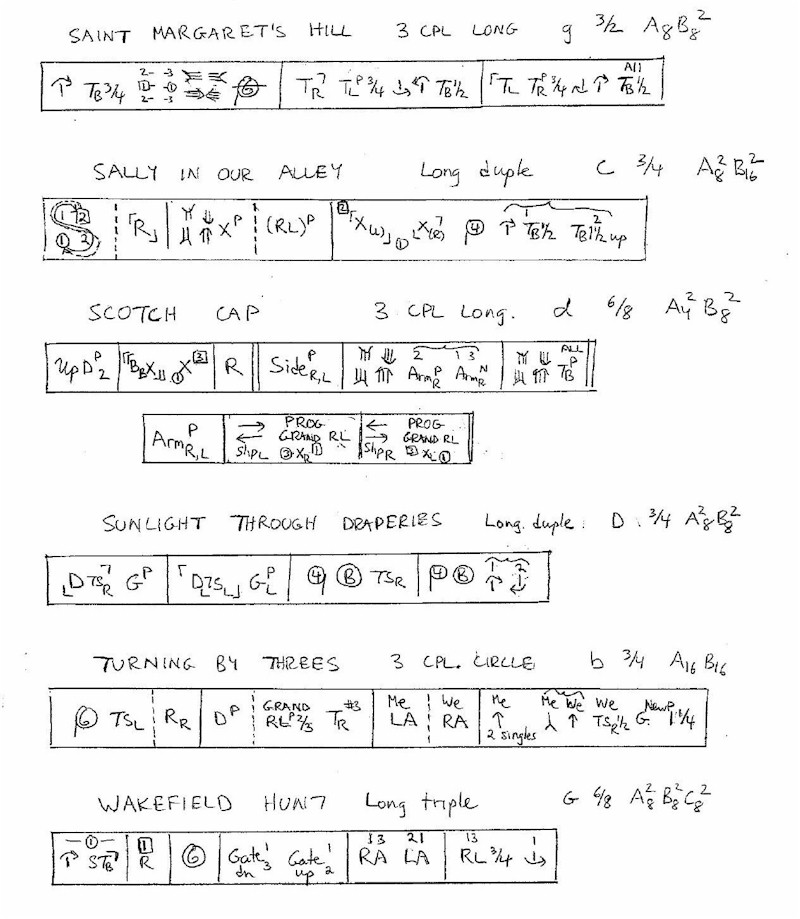 SAINT MARGARET'S HILL 3 CPL LONG g 3/2 A8B8²
TB3/4 2- -3 2- -3 6 TR TL P 3/4 TB1/2 TL TR P 3/4 All TB1/2
SALLY IN OUR ALLEY Long duple C 3/4 A8²B16²
1 2 1 2 R X P (RL)P 2 X(L) 1 X(R) 4 1 TB1/2 2 TB1 1/2 up
SCOTCH CAP 3 CPL LONG. d 6/8 A4²B8²
Up D2 P BB X 1 X 3 R Side R,L P 2 Arm R P 1 3 Arm R N ALL TB P
Arm R,L P Slip L PROG GRAND RL 3 XR 1 Slip R PROG GRAND RL 2 XL 1
SUNLIGHT THROUGH DRAPERIES Long. duple. D. 3/4 A8²B8²
D TSR G P D TSL GL P 4 B TSR 4 B 1 2
TURNING BY THREES 3 CPL. CIRCLE b 3/4 A16B16
6 TSL RR D P GRAND RL P 2/3 TR #3 Me LA We RA Me 2 singles Me We We TSR 1/2 New P G 1 1/4
WAKEFIELD HUNT Long triple G 6/8 A8²B8²C8²
1 STB 1 R 6 Gate dn 1 3 Gate up 1 2 13 RA 21 LA 13 RL 3/4 1